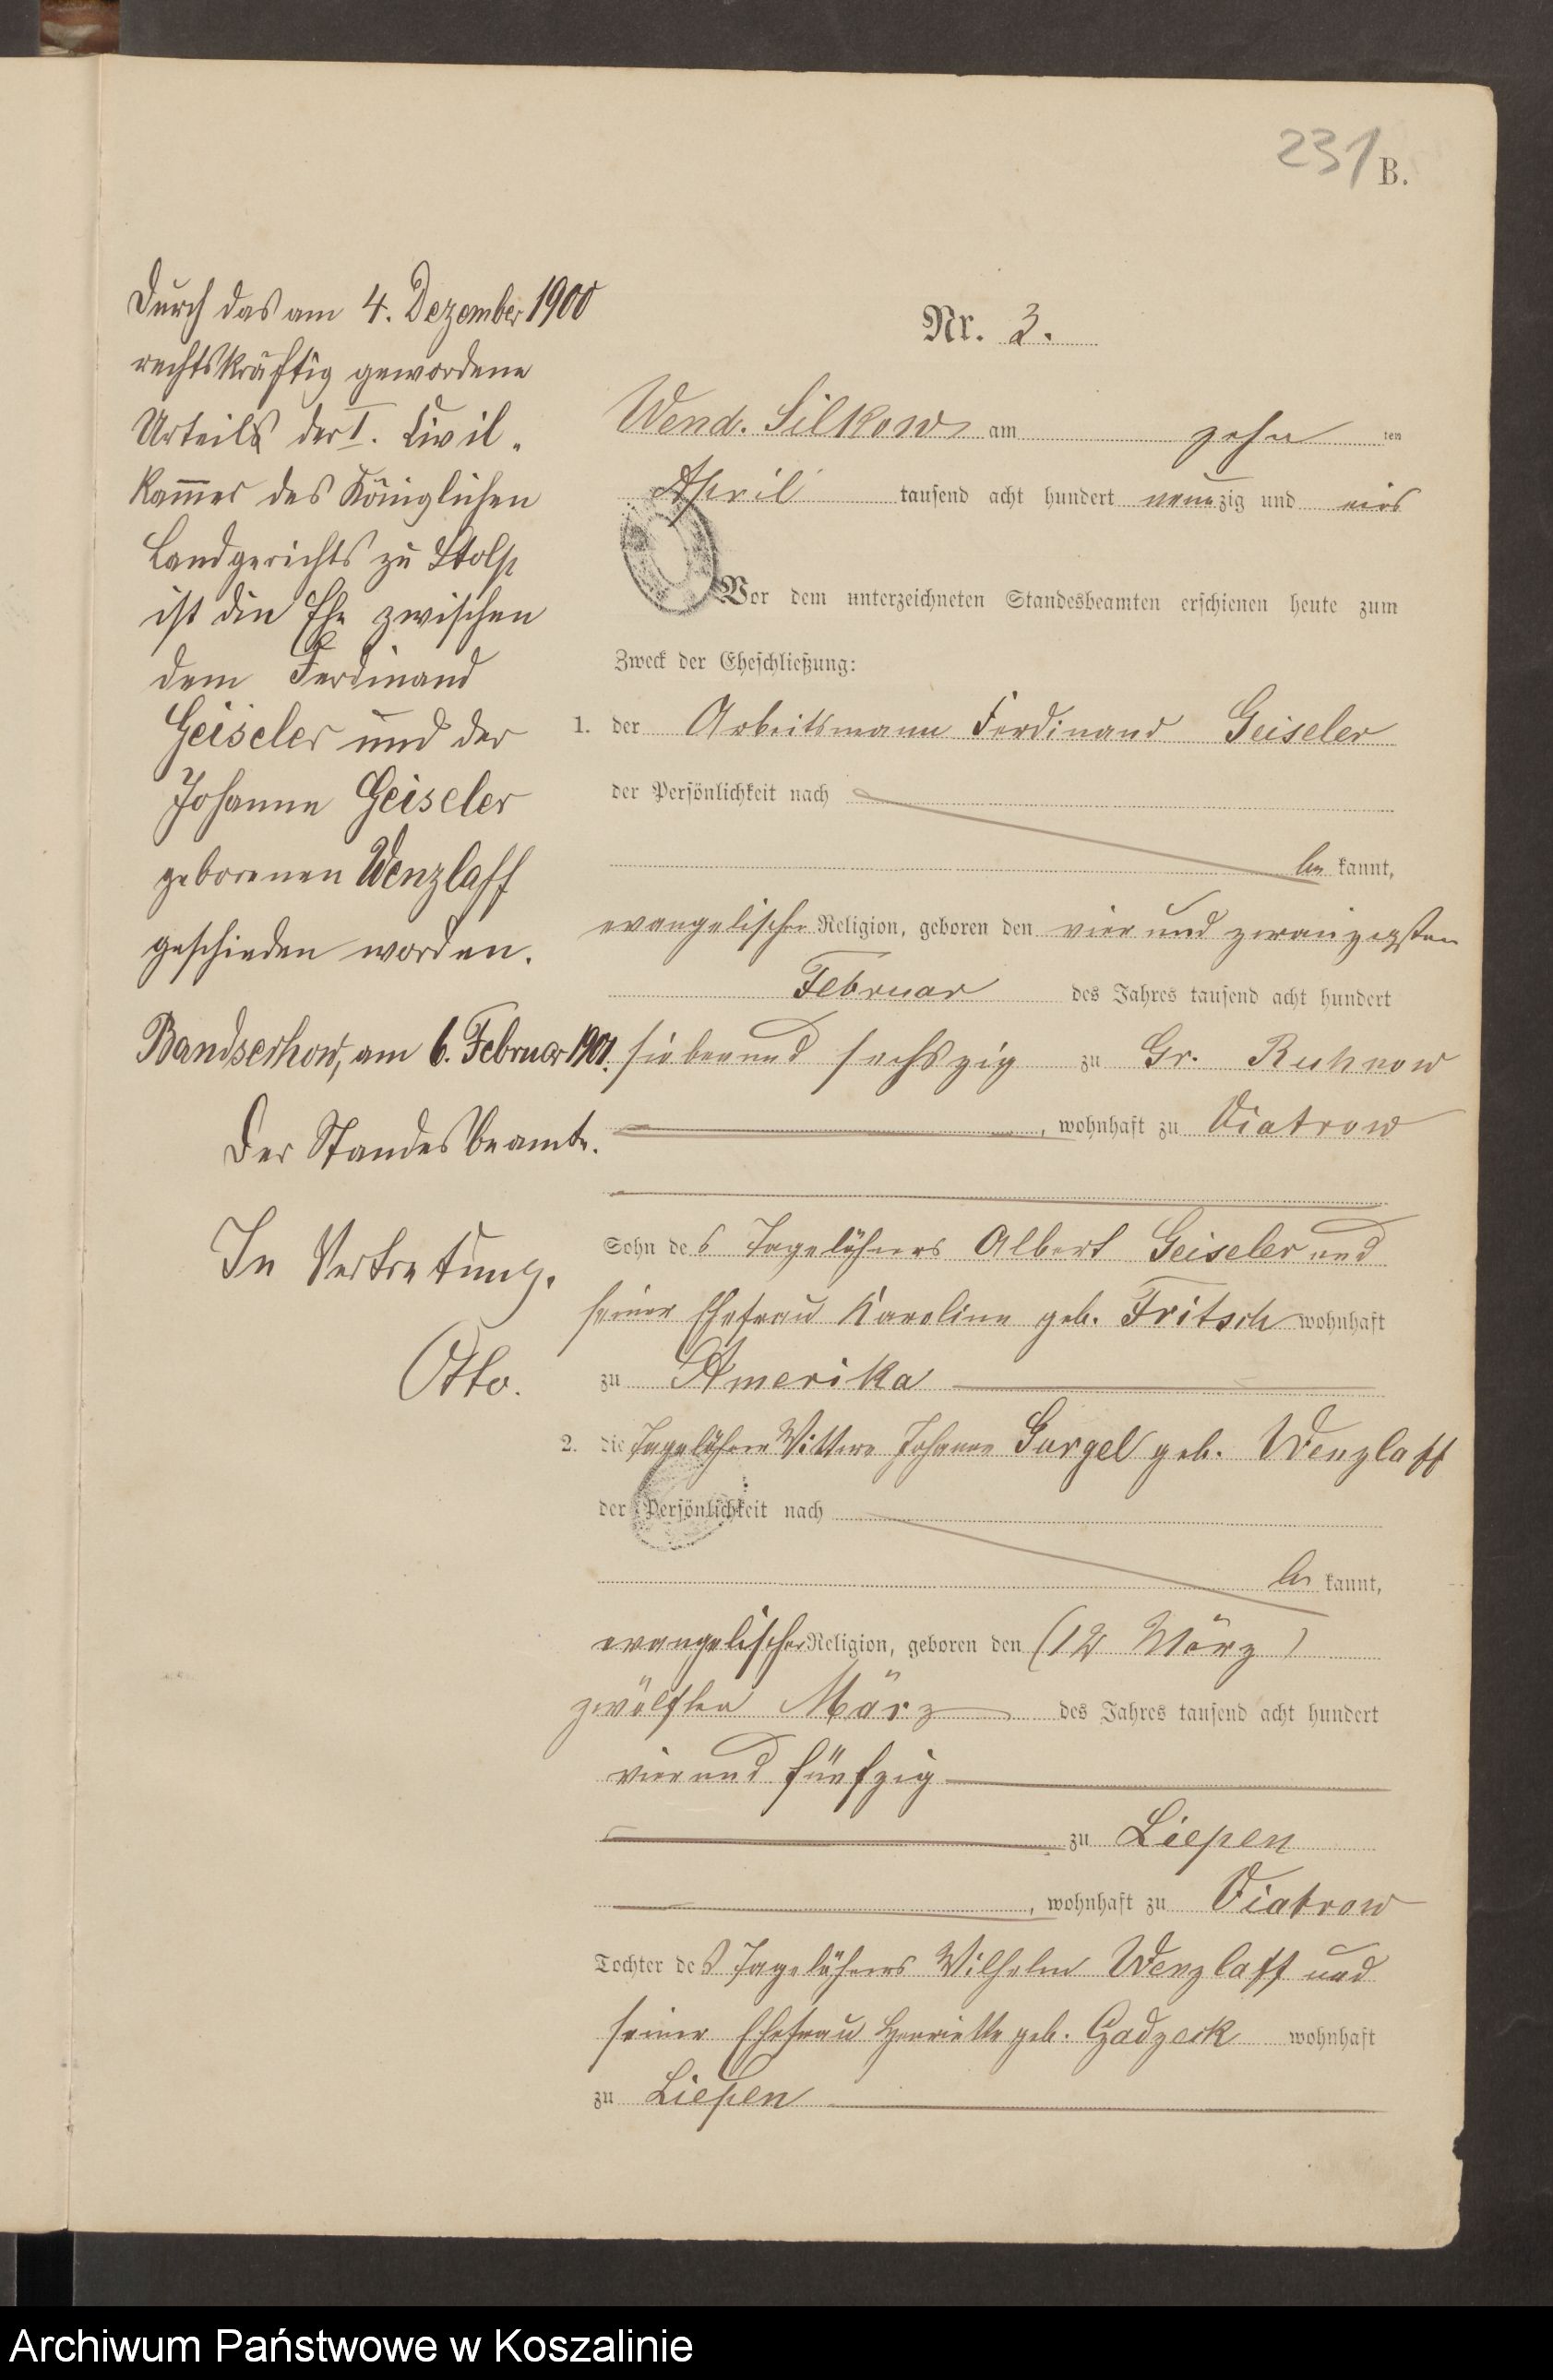 231 B.
Durch das am 4. Dezember 1900
rechtskräftig gewordene
Urteil der I. Civil-
kam̅er des Königlichen
Landgerichts zu Stolp
ist die Ehe zwischen
dem Ferdinand
Geiseler und der
Johanne Geiseler
geborenen Wenzlaff
geschieden worden.
Bandsechow, am 6. Februar 1901.
Der Standesbeamte.
In Vertretung.
Otto.
Nr. 3.
Wend. Silkow am zehn ten
April tausend acht hundert neunzig und eins
Vor dem unterzeichneten Standesbeamten erschienen heute zum
Zweck der Eheschließung:
1. der Arbeitsmann Ferdinand Geiseler
der Persönlichkeit nach
be kannt,
evangelischer Religion, geboren den vier und zwanzigsten
Februar des Jahres tausend acht hundert
sieben und sechszig zu Gr. Ruhnow
, wohnhaft zu Viatrow
Sohn des Tagelöhners Albert Geiseler und
seiner Ehefrau Karoline geb. Fritsch wohnhaft
zu Amerika
2. die Tagelöhner Wittwe Johanne Gurgel geb. Wenzlaff
der Persönlichkeit nach
be kannt,
evangelischer Religion, geboren den (12 März)
zwölften März des Jahres tausend acht hundert
vier und fünfzig
zu Liepen
, wohnhaft zu Viatrow
Tochter des Tagelöhners Wilhelm Wenzlaff und
seiner Ehefrau Henriette geb. Gadzeck wohnhaft
zu Liepen
Archiwum Państwowe w Koszalinie